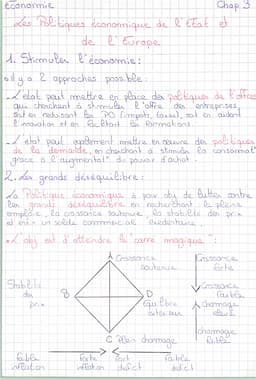 Economie
Chap 3
Les Politiques économique de l'Etat et
de l'Europe
1. Stimuler l'économie :
Il y a 2 approches possible :
- L'état peut mettre en place des politiques de l'offre
qui cherchent à stimuler l'offre des entreprises,
soit en réduisant les PO (impôts, taxes), soit en aidant
l'innovation et en facilitant les formations.
- L'état peut également mettre en œuvre des politiques
de la demande, en cherchant à stimuler la consommat°
grâce à l'augmentat° du pouvoir d'achat.
2. Les grands déséquilibre :
La Politique économique a pour obj de lutter contre
les grands déséquilibre en recherchant : le pleine
emploie, la croissance soutenue, la stabilité des prix
et un solde commercial
L'obj est d'atteindre le carré magique" :
A Croissance
soutenue
Croissance
forte
Stabilité
des
prix
B
D
Equilibre
extérieur
Croissance
faible
chomage
C Plein chomage
chomage
faible
faible
inflation
Forte
inflation
Fort
déficit
Faible
déficit